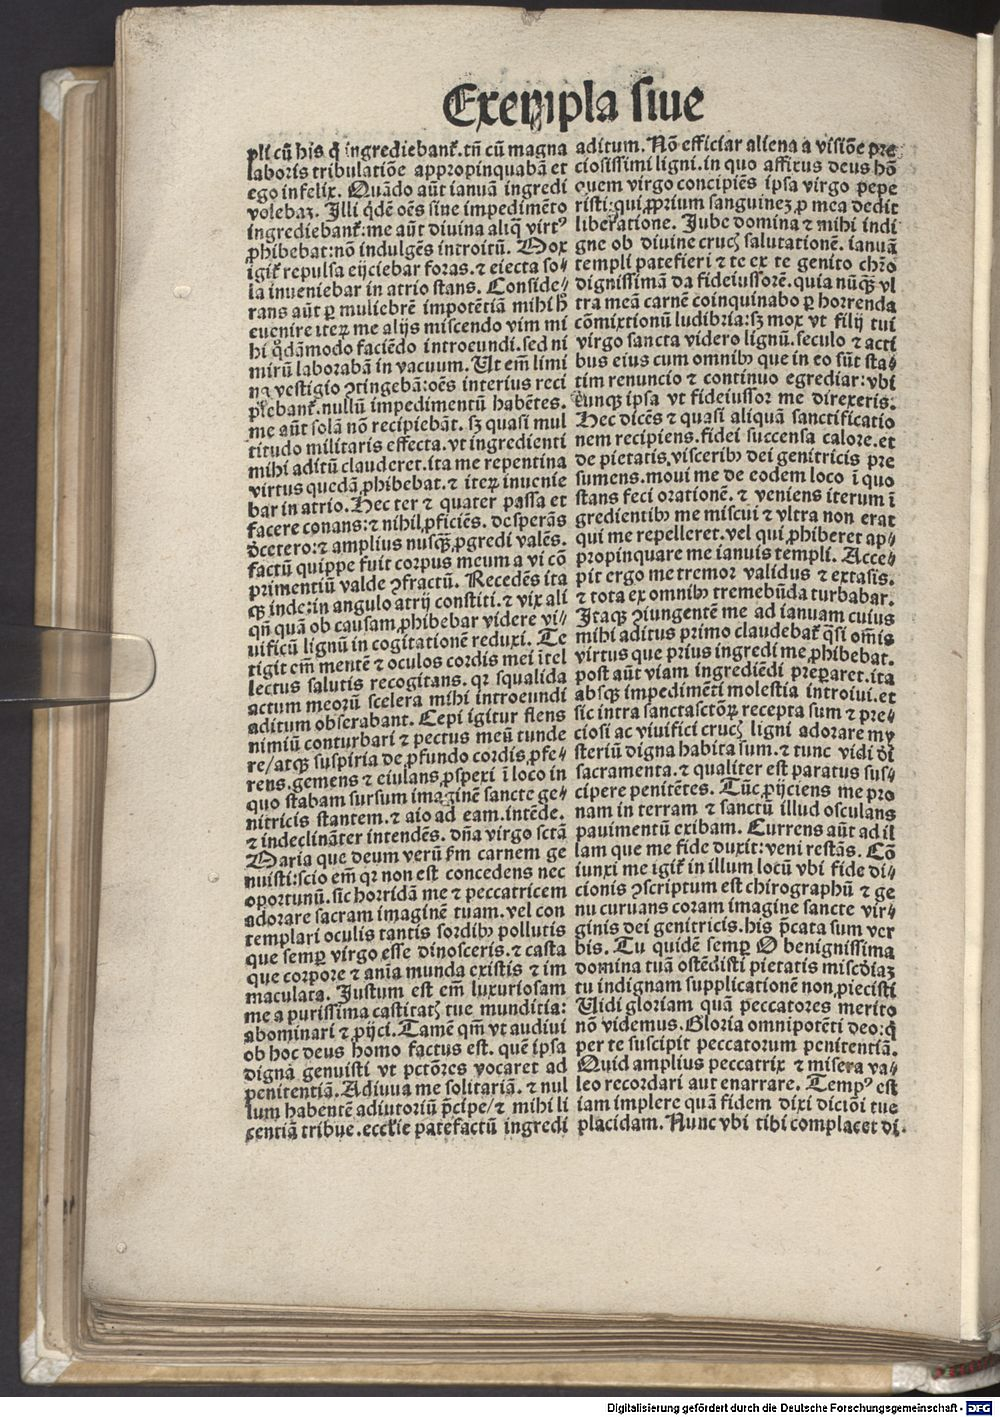 Exempla siue
pli cū his q̄ ingrediebant̃. tñ cū magna
laboris tribulatiōe appropinquabā et
ego infelix. Quādo aūt ianuā ingredi
volebaz. Illi q̄dē oēs sine impedimēto
ingrediebant̃: me aūt diuina aliq̄ virtꝰ
ꝓhibebat: nō indulgēs introitū. Mox
igit̃ repulsa eijciebar foras. ⁊ eiecta so⸗
la inueniebar in atrio stans. Conside⸗
rans aūt ꝑ muliebrē impotētiā mihi h̄
euenire iteꝝ me alijs miscendo vim mi
hi q̄dāmodo faciēdo introeundi. sed ni
mirū laborabā in vacuum. Ut em̄ limi
na vestigio ꝯtingebā: oēs interius reci
piebant̃. nullū impedimentū habētes.
me aūt solā nō recipiebāt. sꝫ quasi mul
titudo militaris effecta. vt ingredienti
mihi aditū clauderet. ita me repentina
virtus quedā ꝓhibebat. ⁊ iteꝝ inuenie
bar in atrio. Hec ter ⁊ quater passa et
facere conans: ⁊ nihil ꝓficiēs. desperās
d̄cetero: ⁊ amplius nusq̄ꝫ ꝓgredi valēs.
factū quippe fuit corpus meum a vi cō
primentiū valde ꝯfractū. Recedēs ita
qꝫ inde: in angulo atrij constiti. ⁊ vix ali
qñ quā ob causam ꝓhibebar videre vi⸗
uificū lignū in cogitationē reduxi. Te
tigit em̄ mentē ⁊ oculos cordis mei ītel
lectus salutis recogitans. qꝛ squalida
actum meorū scelera mihi introeundi
aditum obserabant. Cepi igitur flens
nimiū conturbari ⁊ pectus meū tunde
re/atqꝫ suspiria de ꝓfundo cordis ꝓfe⸗
rens. gemens ⁊ eiulans ꝓspexi ī loco in
quo stabam sursum imaginē sancte ge⸗
nitricis stantem. ⁊ aio ad eam. intēde.
⁊ indeclināter intendēs. dña virgo sctā
Maria que deum verū ẜm carnem ge
nuisti: scio em̄ qꝛ non est concedens nec
oportunū. sic horridā me ⁊ peccatricem
adorare sacram imaginē tuam. vel con
templari oculis tantis sordibꝫ pollutis
que semꝑ virgo esse dinosceris. ⁊ casta
que corpore ⁊ anīa munda existis ⁊ im
maculata. Justum est em̄ luxuriosam
me a purissima castitatꝭ tue munditia:
abominari ⁊ ꝓijci. Tamē qm̄ vt audiui
ob hoc deus homo factus est. quē ipsa
dignā genuisti vt pctōres vocaret ad
penitentiā. Adiuua me solitariā. ⁊ nul
lum habentē adiutoriū p̄cipe/⁊ mihi li
centiā tribue. ecclīe patefactū ingredi
aditum. Nō efficiar aliena a visiōe pre
ciosissimi ligni. in quo affixus deus hō
quem virgo concipiēs ipsa virgo pepe
risti: qui ꝓprium sanguinez ꝓ mea dedit
liberatione. Jube domina ⁊ mihi indi
gne ob diuine crucꝭ salutationē. ianuā
templi patefieri ⁊ te ex te genito chr̄o
dignissimā da fideiussorē. quia nūq̄ꝫ vl
tra meā carnē coinquinabo ꝑ horrenda
cōmixtionū ludibria: sꝫ mox vt filij tui
virgo sancta videro lignū. seculo ⁊ acti
bus eius cum omnibꝫ que in eo sūt sta⸗
tim renuncio ⁊ continuo egrediar: vbi
cunqꝫ ipsa vt fideiussor me direxeris.
Hec dicēs ⁊ quasi aliquā sanctificatio
nem recipiens. fidei succensa calore. et
de pietatis. visceribꝫ dei genitricis pre
sumens. moui me de eodem loco ī quo
stans feci orationē. ⁊ veniens iterum ī
gredientibꝫ me miscui ⁊ vltra non erat
qui me repelleret. vel qui ꝓhiberet ap⸗
propinquare me ianuis templi. Acce⸗
pit ergo me tremor validus ⁊ extasis.
⁊ tota ex omnibꝫ tremebūda turbabar.
Itaqꝫ ꝯiungentē me ad ianuam cuius
mihi aditus primo claudebat̃ q̄si om̄is
virtus que prius ingredi me ꝓhibebat.
post aūt viam ingrediēdi preꝑaret. ita
absqꝫ impedimēti molestia introiui. et
sic intra sanctasctōꝝ recepta sum ⁊ pre⸗
ciosi ac viuifici crucꝭ ligni adorare my
steriū digna habita sum. ⁊ tunc vidi d̄i
sacramenta. ⁊ qualiter est paratus sus⸗
cipere penitētes. Tūc ꝓijciens me pro
nam in terram ⁊ sanctū illud osculans
pauimentū exibam. Currens aūt ad il
lam que me fide duxit: veni restās. Cō
iunxi me igit̃ in illum locū vbi fide di⸗
cionis ꝯscriptum est chirographū ⁊ ge
nu curuans coram imagine sancte vir⸗
ginis dei genitricis. his p̄cata sum ver
bis. Tu quidē semꝑ O benignissima
domina tuā ostēdisti pietatis misc̄diaz
tu indignam supplicationē non ꝓiecisti
Uidi gloriam quā peccatores merito
nō videmus. Gloria omnipotēti deo: q̄
per te suscipit peccatorum penitentiā.
Quid amplius peccatrix ⁊ misera va⸗
leo recordari aut enarrare. Tempꝰ est
iam implere quā fidem dixi dictōi tue
placidam. Nunc vbi tibi complacet di⸗
Digitalisierung gefördert durch die Deutsche Forschungsgemeinschaft - DFG